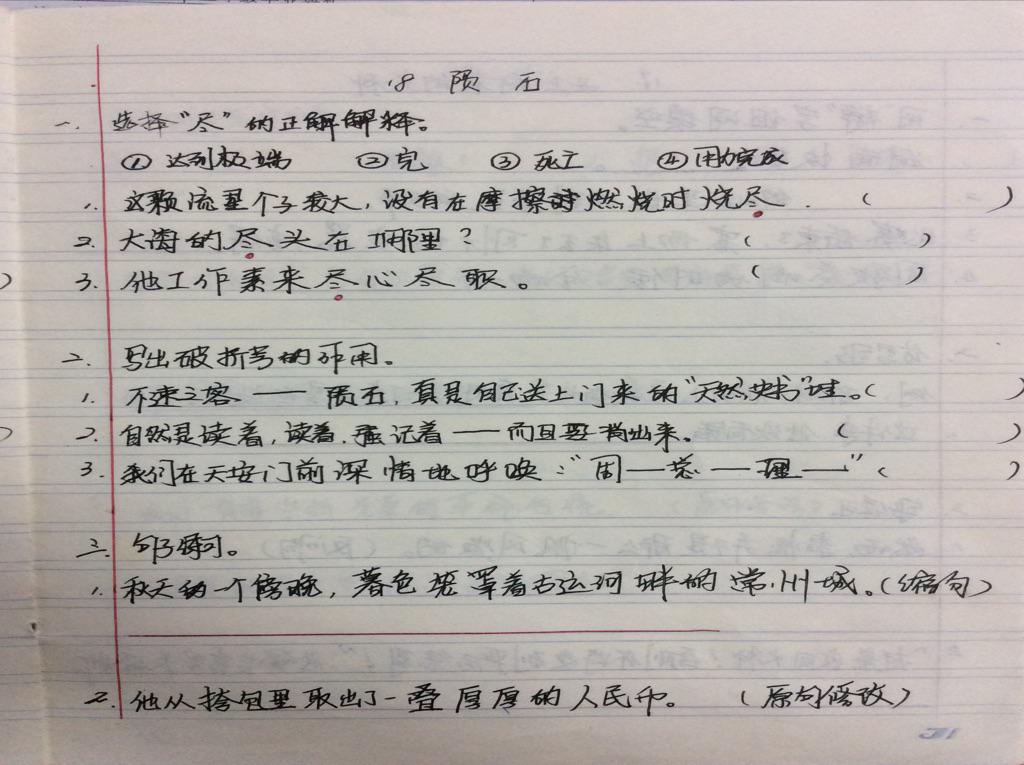 18 陨石
一、选择“尽”的正解解释。
① 达到极端 ② 完 ③ 死亡 ④ 用力完成
1. 这颗流星个子较大，没有在摩擦时燃烧时烧尽. ( )
2. 大海的尽头在哪里？ ( )
3. 他工作素来尽心尽职。 ( )
二、写出破折号的作用。
1. 不速之客——陨石，真是自己送上门来的“天然史书”哇。( )
2. 自然是读着，读着，强记着——而且要背出来。 ( )
3. 我们在天安门前深情地呼唤：“周—总—理—” ( )
三、句子练习。
1. 秋天的一个傍晚，暮色笼罩着古运河畔的常州城。（缩句）
2. 他从挎包里取出了一叠厚厚的人民币。 （原句修改）
31